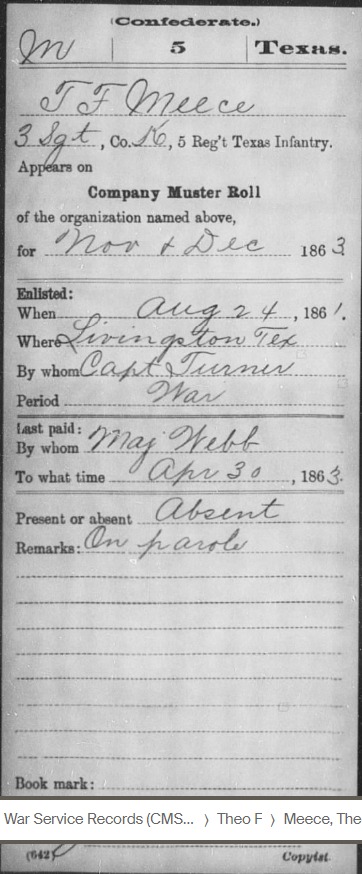 (Confederate.)
M | 5 | Texas.
T F Meece
3 Sgt, Co. K, 5 Reg't Texas Infantry.
Appears on
Company Muster Roll
of the organization named above,
for Nov & Dec 1863
Enlisted:
When Aug 24, 1861.
Where Livingston Tex
By whom Capt Turner
Period War
Last paid:
By whom Maj Webb
To what time Apr 30, 1863.
Present or absent Absent
Remarks: On parole
Book mark:
War Service Records (CMS... 〉 Theo F 〉 Meece, The
(642)
Copyist.